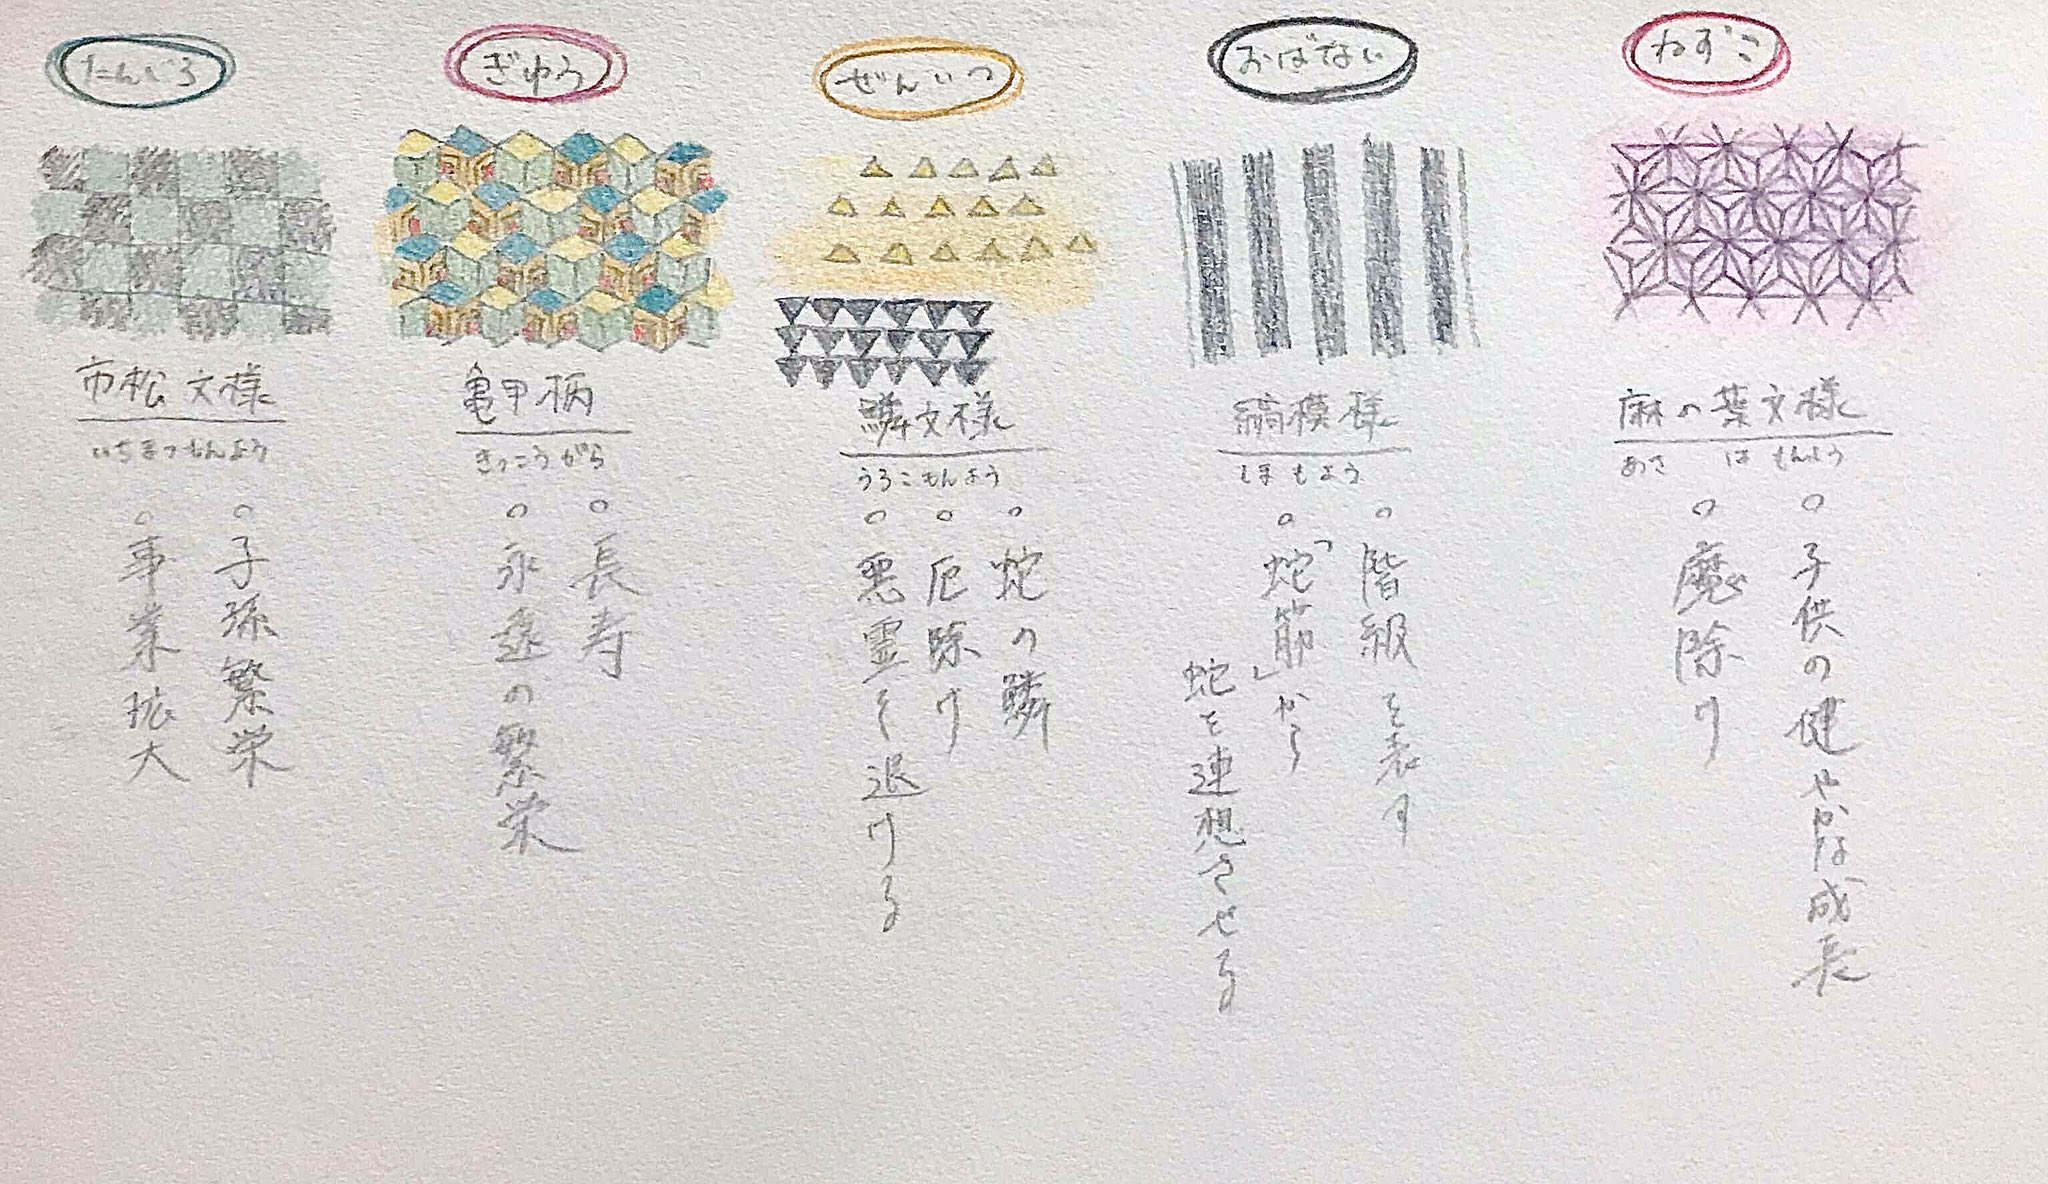 たんじろ
市松文様
いちまつもんよう
。子孫繁栄
。事業拡大
ぎゆう
亀甲柄
きっこうがら
。長寿
。永遠の繁栄
ぜんいつ
鱗文様
うろこもんよう
。蛇の鱗
。厄除け
。悪霊を退ける
おばない
縞模様
しまもよう
。階級を表す
。「蛇筋」から
蛇を連想させる
ねずこ
麻の葉文様
あさ は もんよう
。子供の健やかな成長
。魔除け